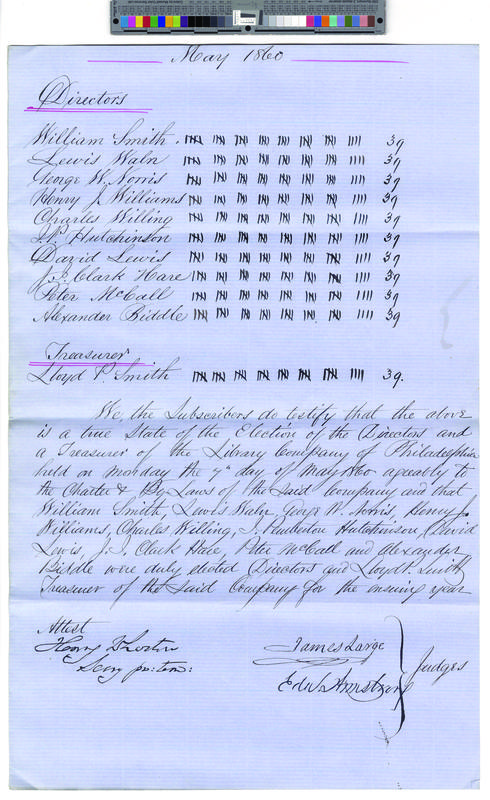 May 1860
Directors
William Smith. 39
Lewis Waln 39
George W. Norris 39
Henry J. Williams 39
Charles Willing 39
J. P. Hutchinson 39
David Lewis 39
J. I. Clark Hare 39
Peter McCall 39
Alexander Biddle 39
Treasurer
Lloyd P. Smith 39.
We, the Subscribers do testify that the above
is a true State of the Election of the Directors and
a Treasurer of the Library Company of Philadelphia
held on Monday the 7th day of May 1860 agreeably to
the Charter & By Laws of the said Company and that
William Smith, Lewis Waln, George W. Norris, Henry J.
Williams, Charles Willing, J. Pemberton Hutchinson, David
Lewis, J. I. Clark Hare, Peter McCall and Alexander
Biddle were duly elected Directors and Lloyd P. Smith
Treasurer of the said Company for the ensuing year
Attest
Henry
Secy pro: tem:
James Large
Edw Armstrong
Judges